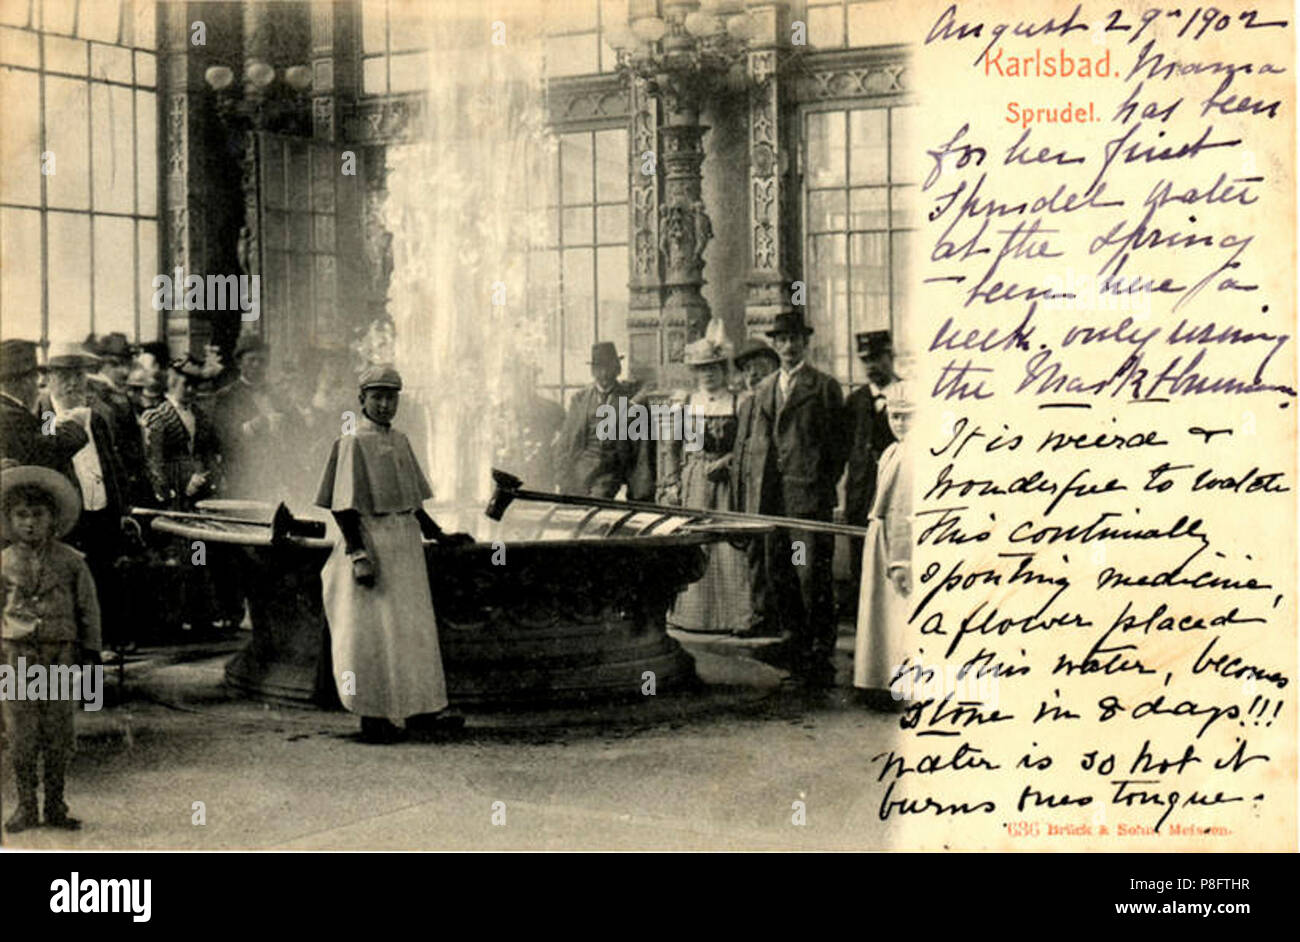 August 29th 1902
Karlsbad. Mama
Sprudel. has been
for her first
Sprudel water
at the spring
– been here a
week. only using
the Markt brunnen.
It is weird &
wonderful to watch
this continually
spouting medicine,
a flower placed
in this water, becomes
stone in 8 days!!!
water is so hot it
burns ones tongue.
636 Brück & Sohn, Meissen.
alamy
alamy
Image ID: P8FTHR
www.alamy.com